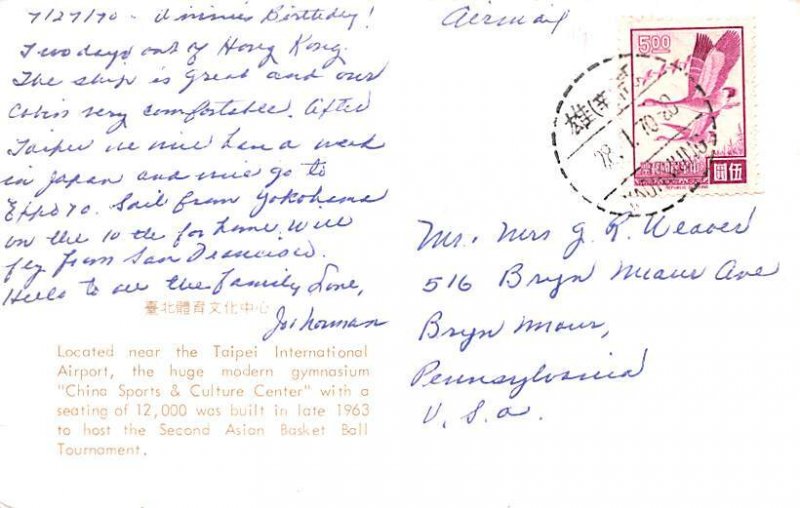 7/27/70 - Jimmie's Birthday!
Two days out of Hong Kong.
The ship is great and our
Cabin very comfortable. After
Taipei we will have a week
in Japan and will go to
Expo 70. Sail from Yokohama
on the 10th for home. Will
fly from San Francisco.
Hello to all the family Love,
Jo & Norman
臺北體育文化中心
Located near the Taipei International
Airport, the huge modern gymnasium
"China Sports & Culture Center" with a
seating of 12,000 was built in late 1963
to host the Second Asian Basket Ball
Tournament.
Airmail
5.00
雄
KAOHSIUNG
圓伍
Mr. Mrs J. R. Weaver
516 Bryn Mawr Ave
Bryn Mawr,
Pennsylvania
U.S.a.